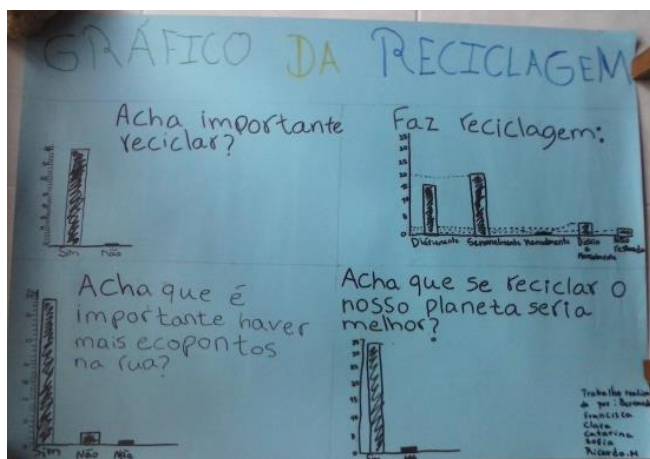 GRÁFICO DA RECICLAGEM
Acha importante
reciclar?
Sim
Não
Faz reciclagem:
Diáriamente
Semanalmente
Mensalmente
Acha que é
importante haver
mais ecopontos
na rua?
Sim
Não
Acha que se reciclar o
nosso planeta seria
melhor?
Trabalho
por:
Francisca
Clara
Catarina
Sofia
Ricardo.M